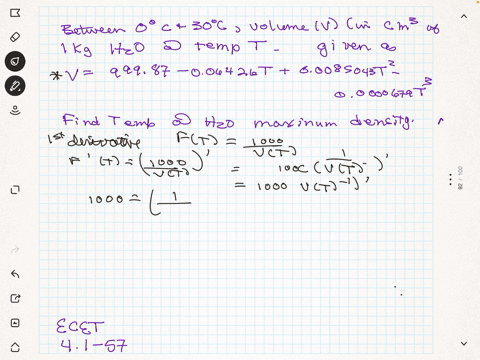 Between 0°C & 30°C, volume (V) (in cm³ of
1 Kg H2O @ temp T. given as
* V = 999.87 - 0.06426T + 0.0085043T² -
0.0000679T³
Find Temp @ H2O maximum density.
1st derivative F(T) = 1000/V(T)
F'(T) = (1000/V(T))' = 1000 (1/V(T))'
= 1000 V(T)⁻¹)'
1000 = (1/
ECET
4.1-57